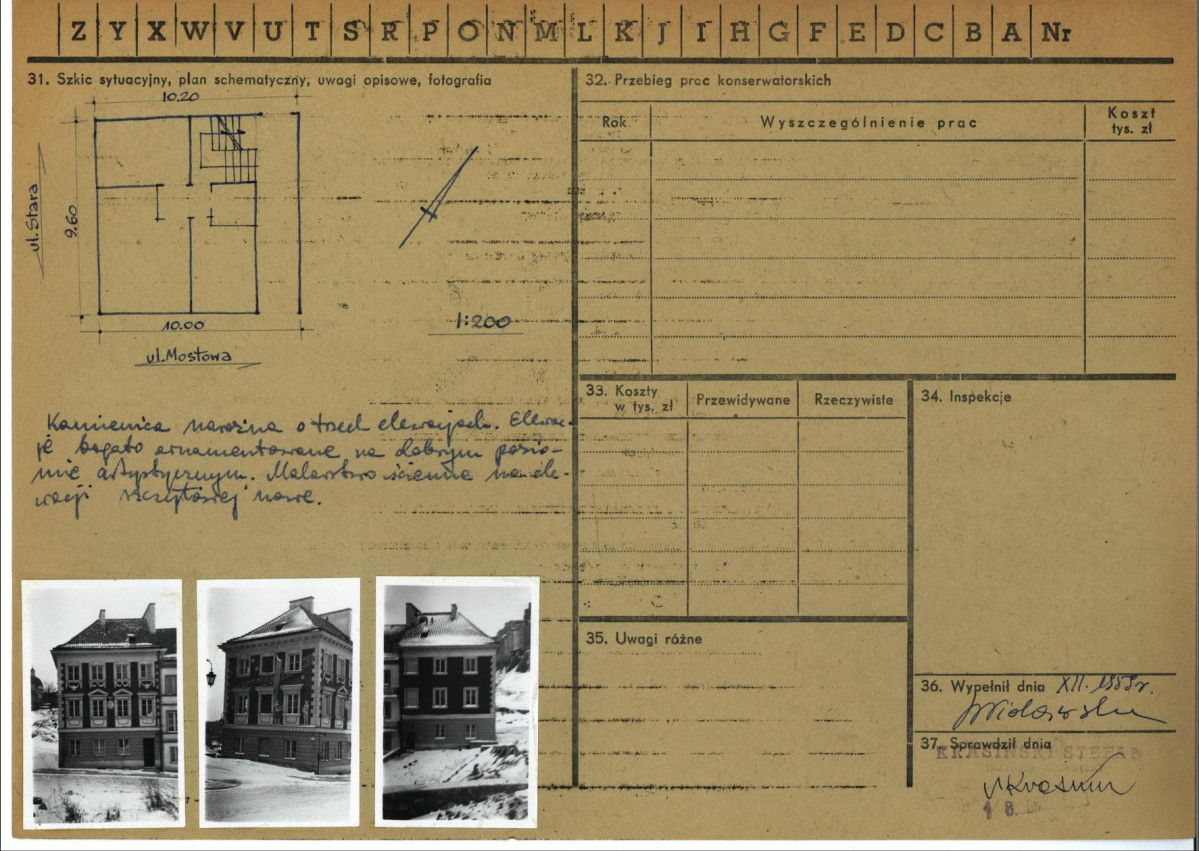 Z Y X W V U T S R P O N M L K J I H G F E D C B A Nr
31. Szkic sytuacyjny, plan schematyczny, uwagi opisowe, fotografia
10.20
ul. Stara
9.60
10.00
ul. Mostowa
1:200
Kamienica narożna o trzech elewacjach. Elewac-
je bogato ornamentowane na dobrym pozio-
mie artystycznym. Malarstwo ścienne na ele-
wacji szczytowej nowe.
32. Przebieg prac konserwatorskich
Rok Wyszczególnienie prac Koszt tys. zł
33. Koszty w tys. zł Przewidywane Rzeczywiste
34. Inspekcje
35. Uwagi różne
36. Wypełnił dnia XII. 1959 r.
37. Sprawdził dnia
KRASIŃSKI STEFAN
18.